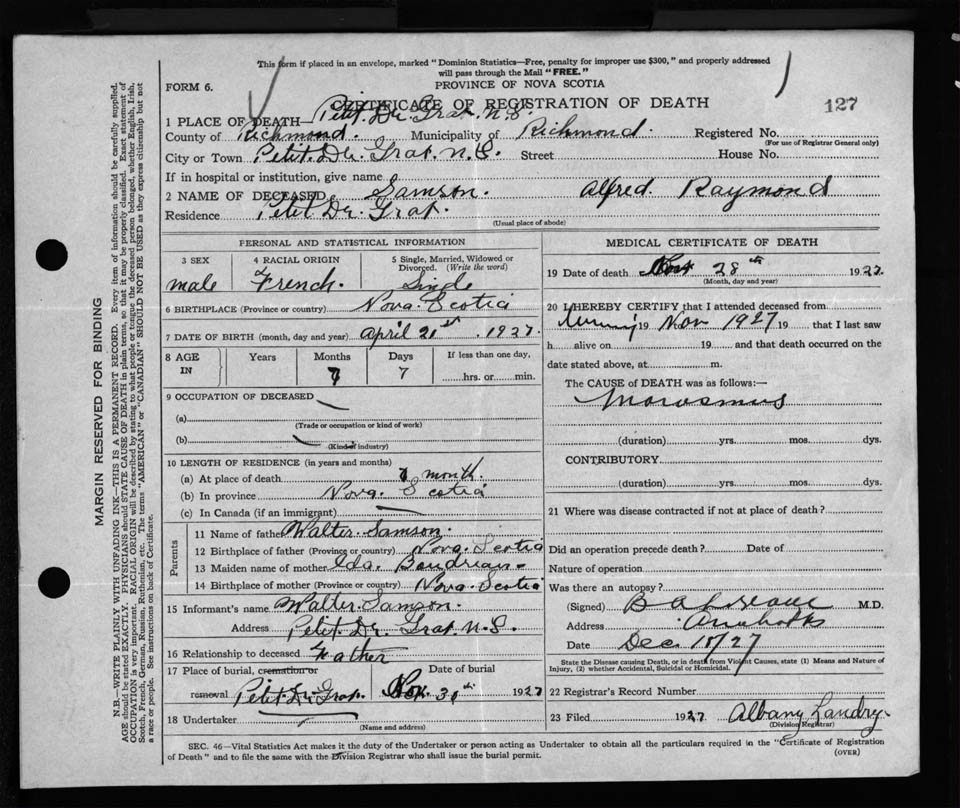 This form if placed in an envelope, marked "Dominion Statistics—Free, penalty for improper use $300," and properly addressed
will pass through the Mail "FREE."
FORM 6.
PROVINCE OF NOVA SCOTIA
CERTIFICATE OF REGISTRATION OF DEATH
127
1 PLACE OF DEATH— Petit. De. Grat. N.S.
County of Richmond. Municipality of Richmond. Registered No.
(For use of Registrar General only)
City or Town Petit. De. Grat. N.S. Street House No.
If in hospital or institution, give name
2 NAME OF DECEASED Samson. Alfred. Raymond
Residence Petit De. Grat.
(Usual place of abode)
PERSONAL AND STATISTICAL INFORMATION
3 SEX 4 RACIAL ORIGIN 5 Single, Married, Widowed or Divorced. (Write the word)
male French. Single
6 BIRTHPLACE (Province or country) Nova. Scotia
7 DATE OF BIRTH (month, day and year) April 21st. 1927.
8 AGE IN Years Months Days If less than one day,
7 7 hrs. or min.
9 OCCUPATION OF DECEASED
(a)
(Trade or occupation or kind of work)
(b)
(Kind of industry)
10 LENGTH OF RESIDENCE (in years and months)
(a) At place of death 7 month.
(b) In province Nova. Scotia
(c) In Canada (if an immigrant)
Parents
11 Name of father Walter. Samson.
12 Birthplace of father (Province or country) Nova. Scotia
13 Maiden name of mother Ida. Boudrian
14 Birthplace of mother (Province or country) Nova. Scotia
15 Informant's name Walter. Samson.
Address Petit. De. Grat. N.S.
16 Relationship to deceased Father
17 Place of burial, cremation or removal Date of burial
Petit. De. Grat. Nov. 30th. 1927
18 Undertaker
(Name and address)
MEDICAL CERTIFICATE OF DEATH
19 Date of death Nov 28th 1927.
(Month, day and year)
20 I HEREBY CERTIFY that I attended deceased from
19 Nov 1927 19 that I last saw
h alive on 19 and that death occurred on
date stated above, at m.
The CAUSE of DEATH was as follows:—
Marasmus
(duration) yrs. mos. dys.
CONTRIBUTORY
(duration) yrs. mos. dys.
21 Where was disease contracted if not at place of death?
Did an operation precede death? Date of
Nature of operation
Was there an autopsy?
(Signed) B A M.D.
Address
Date Dec. /27
State the Disease causing Death, or in death from Violent Causes, state (1) Means and Nature of
Injury, (2) whether Accidental, Suicidal or Homicidal.
22 Registrar's Record Number
23 Filed 1927 Albany Landry
(Division Registrar)
SEC. 46—Vital Statistics Act makes it the duty of the Undertaker or person acting as Undertaker to obtain all the particulars required in the "Certificate of Registration
of Death" and to file the same with the Division Registrar who shall issue the burial permit.
(OVER)
MARGIN RESERVED FOR BINDING
N.B.—WRITE PLAINLY WITH UNFADING INK—THIS IS A PERMANENT RECORD. Every item of information should be carefully supplied.
AGE should be stated EXACTLY. PHYSICIANS should STATE CAUSE OF DEATH in plain terms, so that it may be properly classified. Exact statement of
OCCUPATION is very important. RACIAL ORIGIN will be described by stating to what people or tongue the deceased person belonged, whether English, Irish,
Scotch, French, German, Russian, Ruthenian, etc. The terms "AMERICAN" or "CANADIAN" SHOULD NOT BE USED as they express citizenship but not
a race or people. See instructions on back of Certificate.